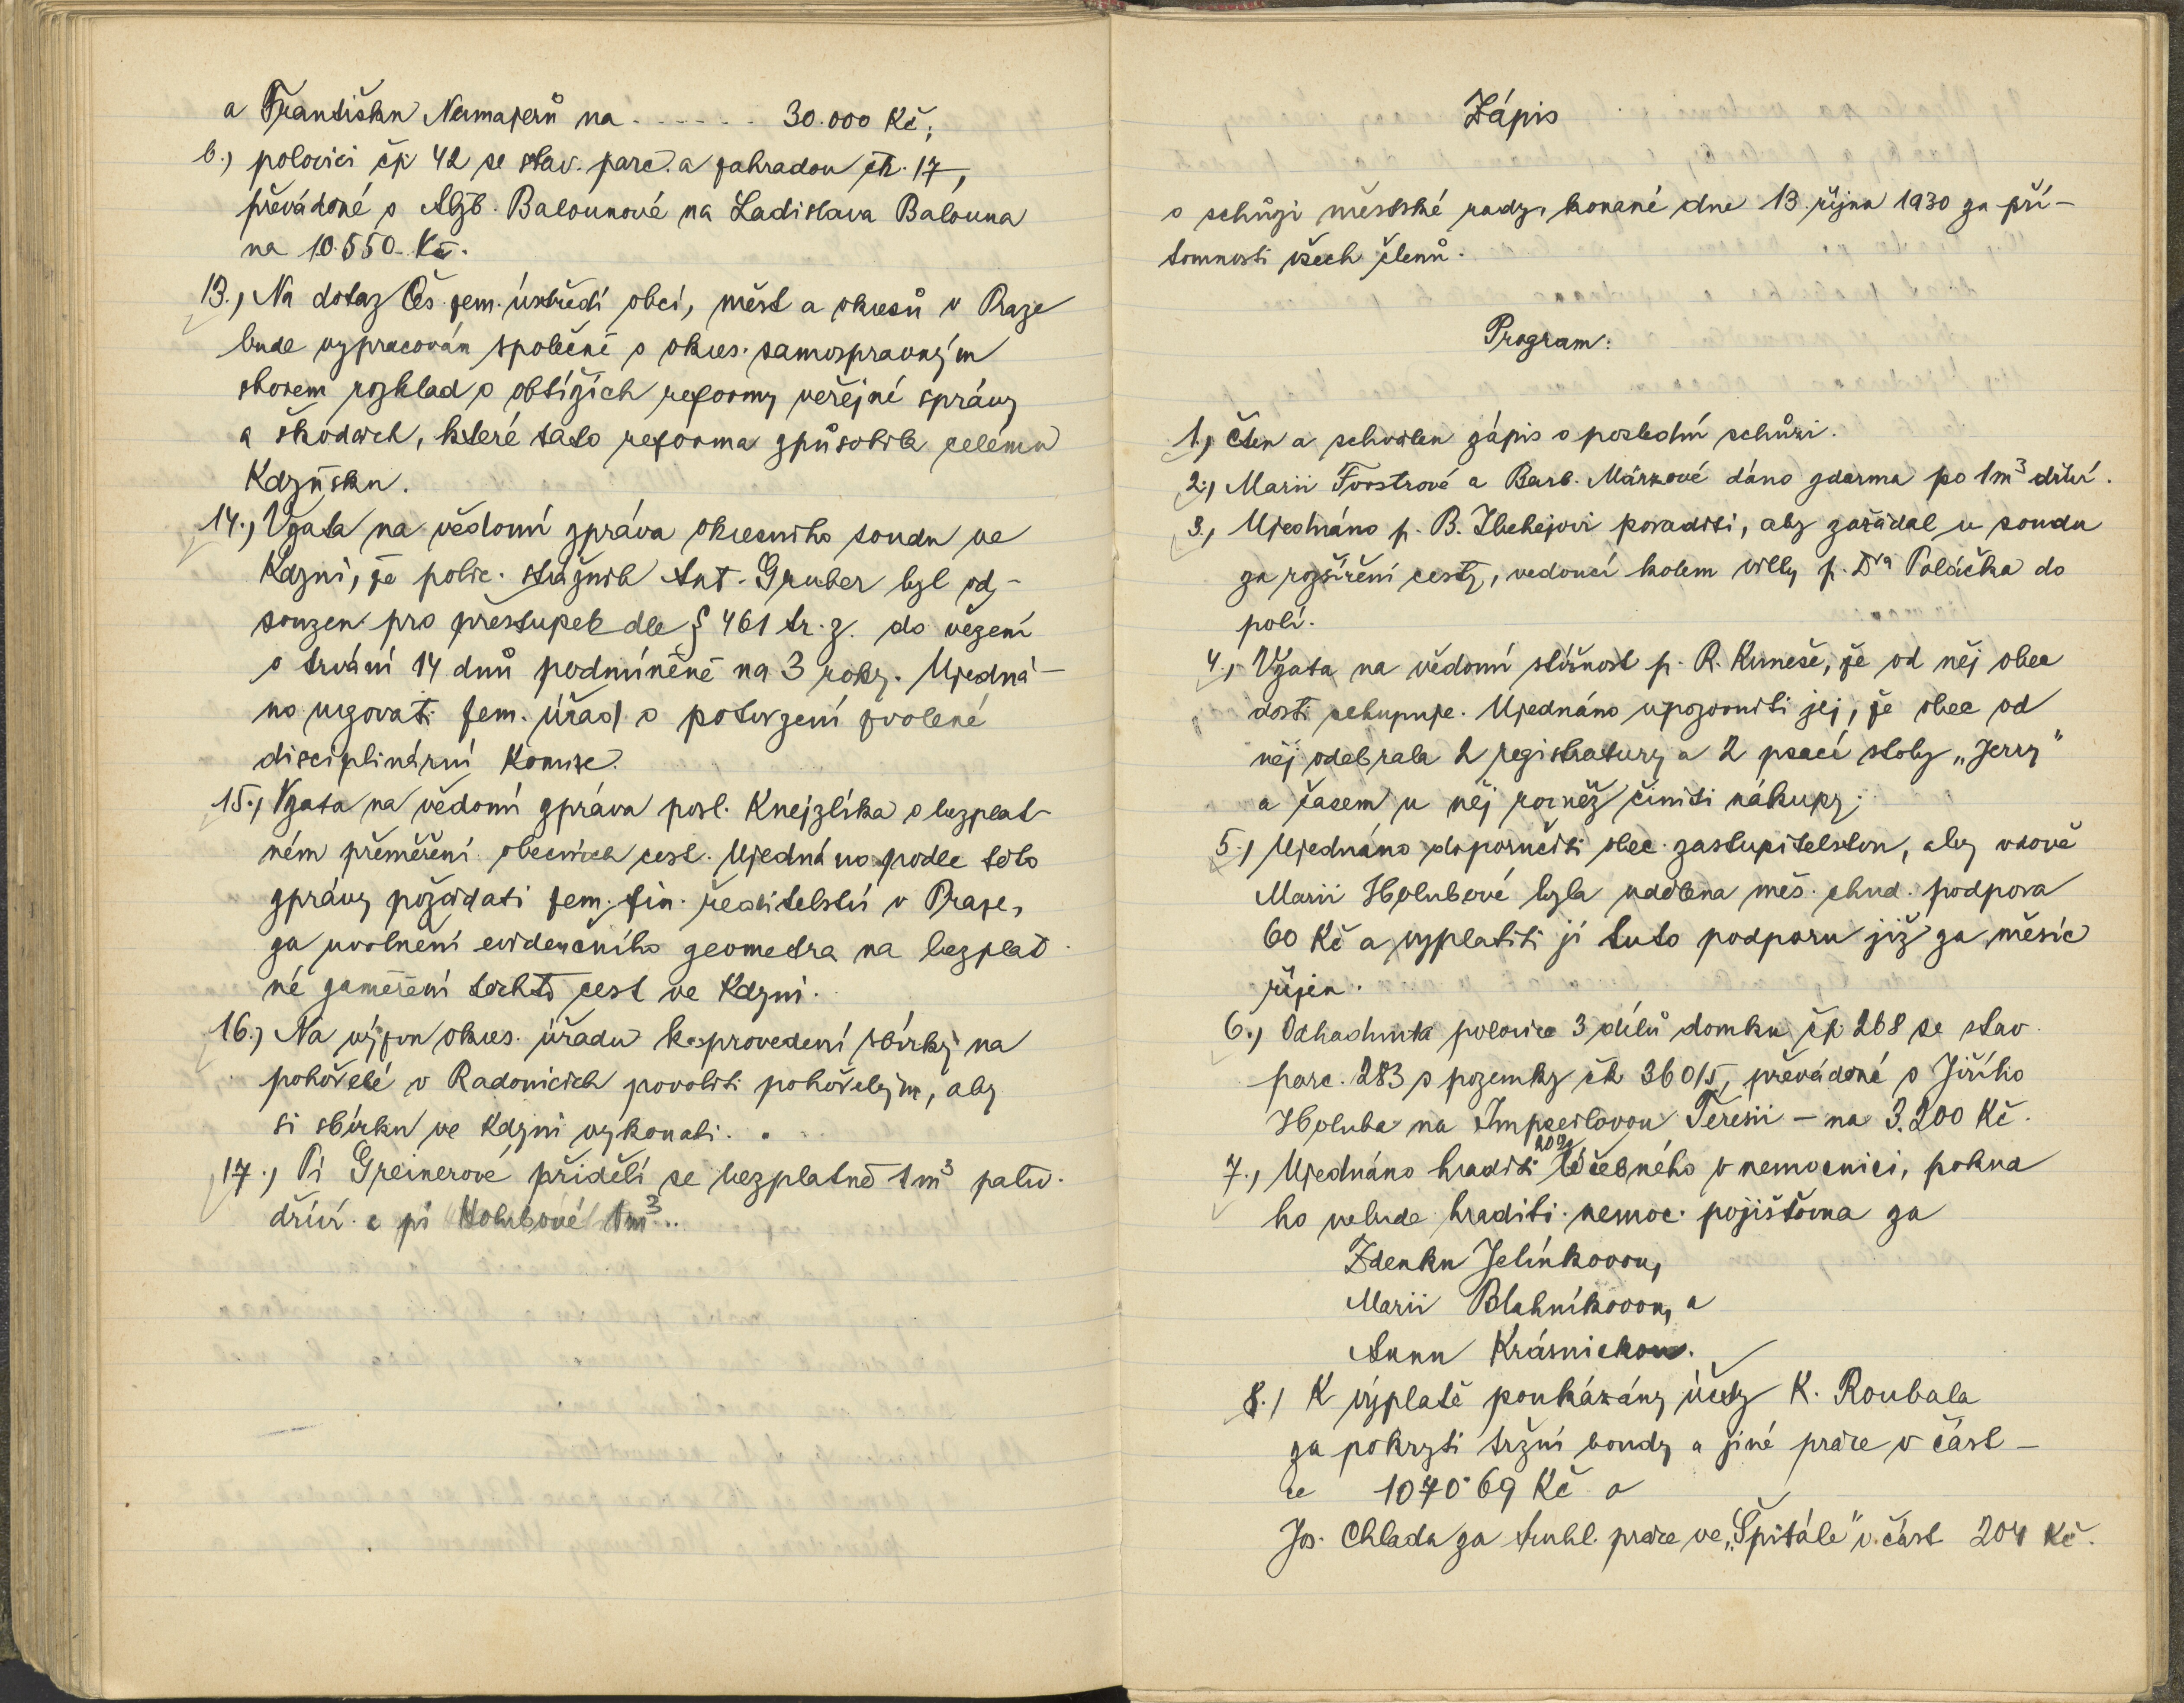 a Františku Nermajerů na . . . . . . 30.000 Kč;
b.) polovici čp 42 se stav. parc. a zahradou čk. 17,
převáděné s Alžb. Balounové na Ladislava Balouna
na 10.550.- Kč.
13.) Na dotaz Čs. zem. ústředí obcí, měst a okresů v Praze
bude vypracován společně s okres. samosprávným
sborem rozklad o obtížích reformy veřejné správy
a škodách, které tato reforma způsobila celému
Kdyňsku.
14.) Vzata na vědomí zpráva okresního soudu ve
Kdyni, že polic. strážník Ant. Gruber byl od-
souzen pro přestupek dle § 461 tr. z. do vězení
o trvání 14 dnů podmíněně na 3 roky. Ujedná-
no urgovati zem. úřad o potvrzení zvolené
disciplinární komise.
15.) Vzata na vědomí zpráva posl. Knejzlíka o bezplat-
ném přeměření obecních cest. Ujednáno podle této
zprávy požádati zem. fin. ředitelství v Praze,
za uvolnění evidenčního geometra na bezplat
né zaměření těchto cest ve Kdyni.
16.) Na výzvu okres. úřadu k provedení sbírky na
pohořelé v Radonicích povoliti pohořelým, aby
si sbírku ve Kdyni vykonali.
17.) Pí Greinerové přidělí se bezplatně 1 m³ paliv.
dříví a pí Holubové 1m³..
Zápis
o schůzi městské rady, konané dne 13. října 1930 za pří-
tomnosti všech členů.
Program:
1.) Čten a schválen zápis o poslední schůzi.
2.) Marii Forstrové a Barb. Márzové dáno zdarma po 1m³ dříví.
3.) Ujednáno p. B. poraditi, aby zažádal u soudu
za rozšíření cesty, vedoucí kolem villy p. Dra Poláčka do
polí.
4.) Vzata na vědomí stížnost p. R. Kuneše, že od něj obec
dosti nekupuje. Ujednáno upozorniti jej, že obec od
něj odebrala 2 registratury a 2 psací stoly „Jerry"
a časem u něj rovněž činiti nákupy;
5.) Ujednáno doporučiti obec. zastupitelstvu, aby vdově
Marii Holubové byla udělena měs. chud. podpora
60 Kč a vyplatiti jí tuto podporu již za měsíc
říjen.
6.) Odhadnuta polovice 3 dílů domku čp 268 se stav.
parc. 283 s pozemky čk 360/5, převáděné s Jiřího
Holuba na Teresii - na 3.200 Kč.
7.) Ujednáno hraditi 20% léčebného v nemocnici, pokud
ho nebude hraditi nemoc. pojišťovna za
Zdenku Jelínkovou,
Marii Blahníkovou, a
Annu Krásnickou.
8.) K výplatě poukázány účty K. Roubala
za pokrytí tržní boudy a jiné práce v část-
ce 1070·69 Kč a
Jos. Chlada za truhl. práce ve „Špitále" v část 204 Kč.